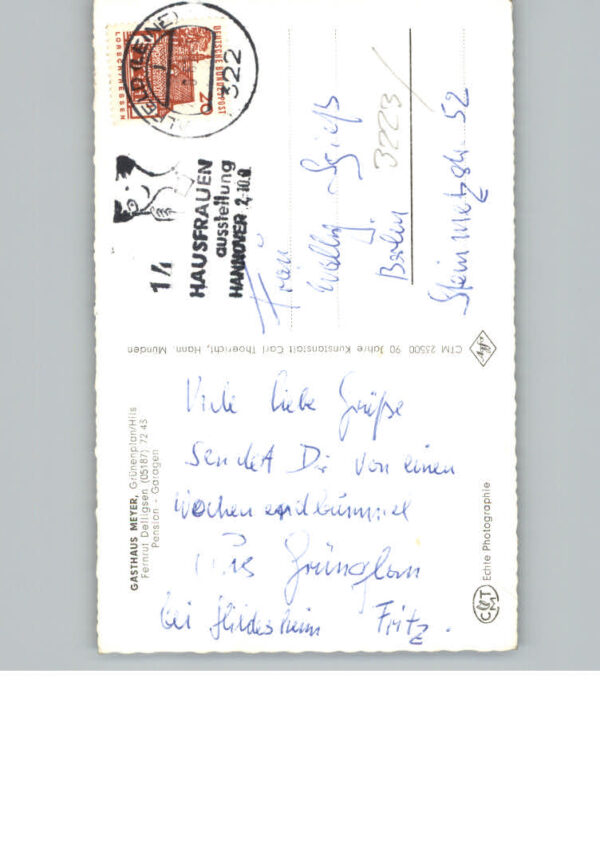 GASTHAUS MEYER, Grünenplan/Hils
Fernruf Delligsen (05187) 72 43
Pension - Garagen
Viele liebe Grüße
sendet Dir von einen
Wochenendbummel
Grünplan
bei Hildesheim Fritz.
CTM 25500 90 Jahre Kunstanstalt Carl Thoericht, Hann. Münden
CMT Echte Photographie
DEUTSCHE BUNDESPOST
20
LORSCH/HESSEN
(LEINE)
322
14
HAUSFRAUEN
ausstellung
HANNOVER 2.-10.
Frau
Wally
Berlin
Steinmetzstr. 52
3223